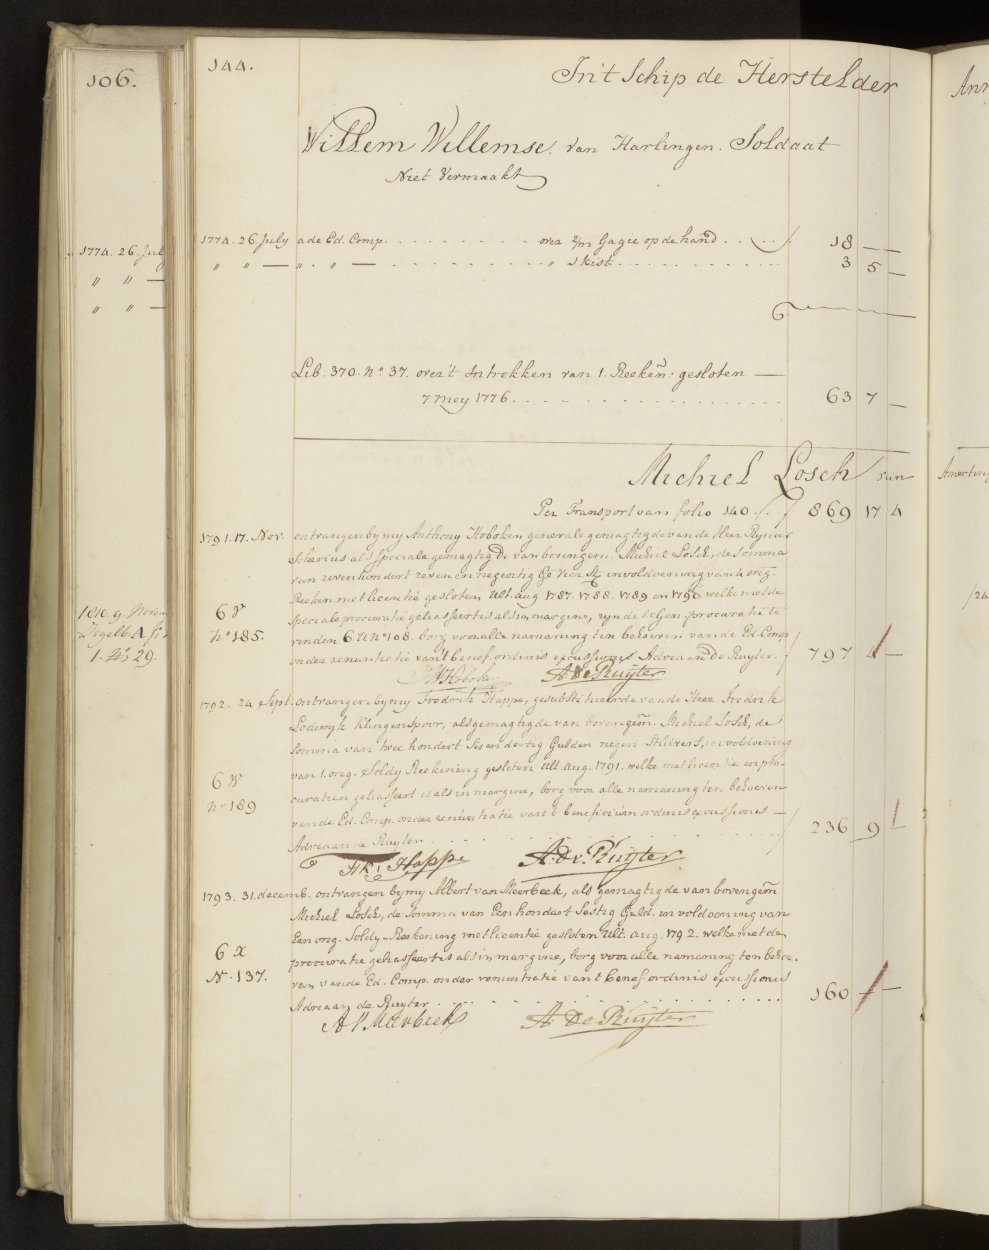 106.
1774. 26. July
" " —
" " —
1810. 9. Novem
Zegelb. A
144.
In't Schip de Herstelder
Willem Willemse. van Harlingen. Soldaat
Niet Vermaakt
1774. 26. July a de Ed. Comp. over 2/m Gagie op de hand 18 — —
" " — " " — " 1 kist 3 5 —
Lib. 370. No. 37. over 't Intrekken van 1. Reeken: gesloten —
7 mey 1776. 63 7 —
Michiel Losch van
Per Transport van folio 140. 869 17 4
1791. 17. Nov. ontvangen by my Anthony Hoboken generale gemagtigde van de Heer Rynier
Scherius als speciale gemagtigde van bovengem. Michiel Losch, de somma
van zevenhondert zeven en negentig Ge vier in voldoening van 4 orig.
Reeken met licentie gesloten Ult. aug 1787. 1788. 1789 en 1790. welke met de
speciale procuratie gekasseert is als in margine, zynde de Gen. procuratie te
vinden 6 U No 108. borg voor alle namaning ten behoeven van de Ed. Comp
onder renuntiatie van't benef. ordinis excussionis Adriaan De Ruyter. 797 4 —
6 V
No 185.
A. V. Hoboken A. De Ruijter
1792. 24 Sept. ontvangen by my Fredrik Happe, gesubstitueerde van de Heer Fredrik
Lodewyk Klingenspoor, als gemagtigde van bovengem. Michiel Losch, de
somma van twee hondert ses en dertig Gulden negen Stuivers, in voldoening
van 1. orig. Soldy Reekening gesloten Ult. Aug. 1791. welke met licentie en pro-
curatien gekasseert is als in margine, borg voor alle namaning ten behoeven
van de Ed. Comp. onder renuntiatie van't beneficium ordinis excussionis —
Adriaan de Ruyter 236 9 —
6 W
No 189
Frk. Happe A. De Ruijter
1793. 31. decemb. ontvangen by my Albert van Meerbeek, als gemagtigde van bovengem
Michiel Losch, de somma van Een hondert Sestig Guld. in voldoening van
Een orig. Soldy-Reekening met licentie gesloten Ult. aug. 1792. welke met de
procuratie gekasseert is als in margine, borg voor alle namaning ten behoe-
ven van de Ed. Comp. onder renuntiatie van't benef ordinis excussionis
Adriaan de Ruyter 160 — —
6 X
N. 137.
A. V. Meerbeek A. De Ruijter